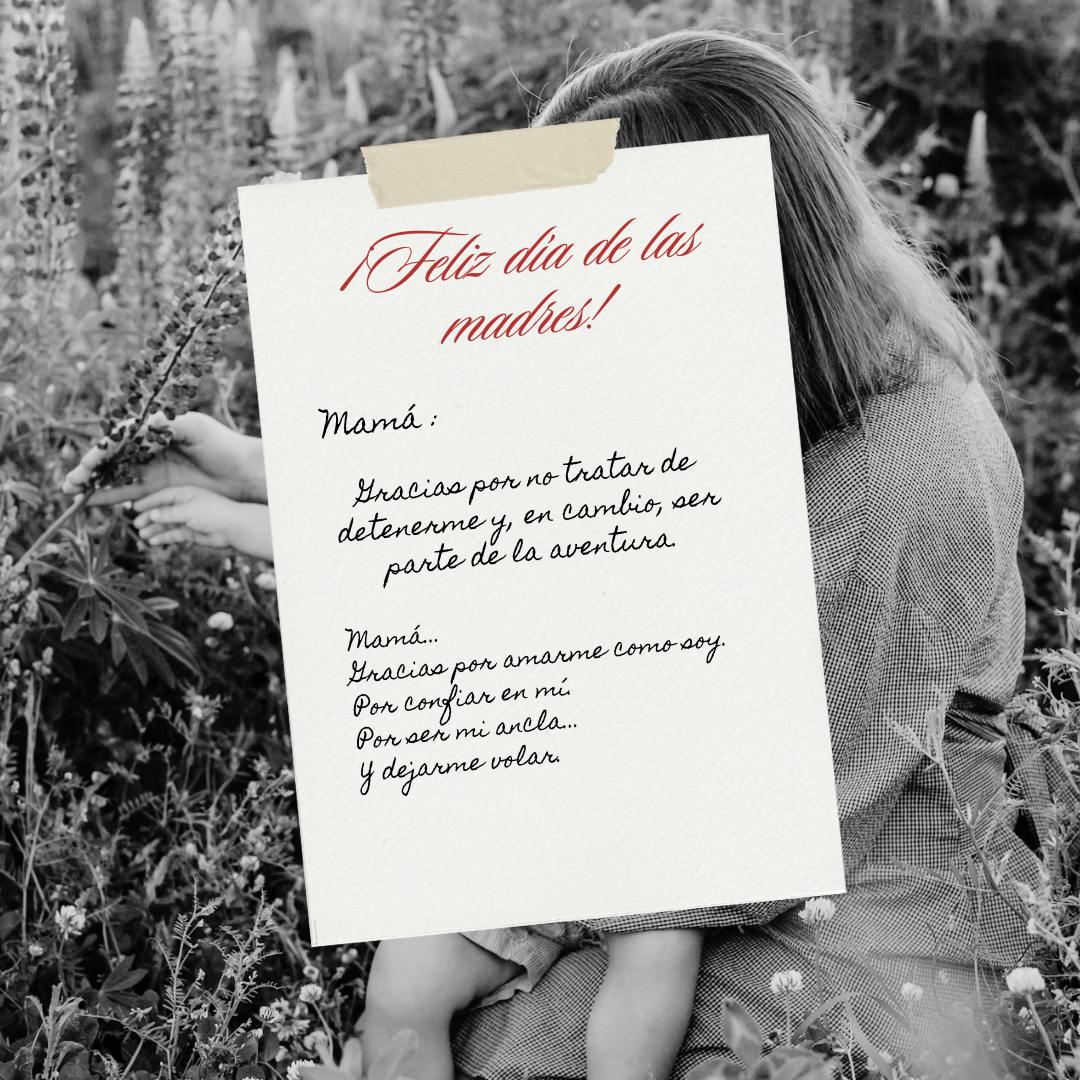 ¡Feliz día de las
madres!
Mamá :
Gracias por no tratar de
detenerme y, en cambio, ser
parte de la aventura.
Mamá...
Gracias por amarme como soy.
Por confiar en mí.
Por ser mi ancla...
Y dejarme volar.